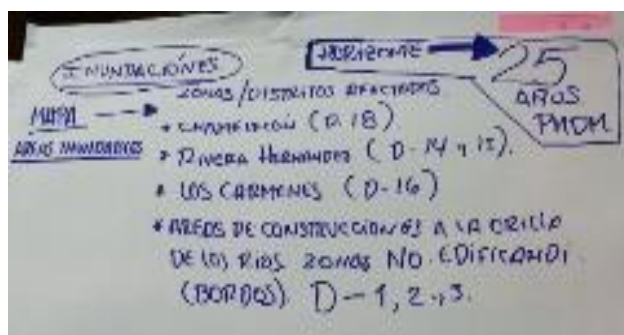 INUNDACIONES
HORIZONTE → 25 AÑOS PMDM
MAPA → ZONAS/DISTRITOS AFECTADOS
AREAS INUNDADAS
* CHAMELECÓN (D-18)
* RIVERA HERNANDEZ (D-14 y 15).
* LOS CARMENES (D-16)
* AREAS DE CONSTRUCCIONES A LA ORILLA
DE LOS RIOS ZONAS NO EDIFICANDI
(BORDOS) D-1, 2 y 3.